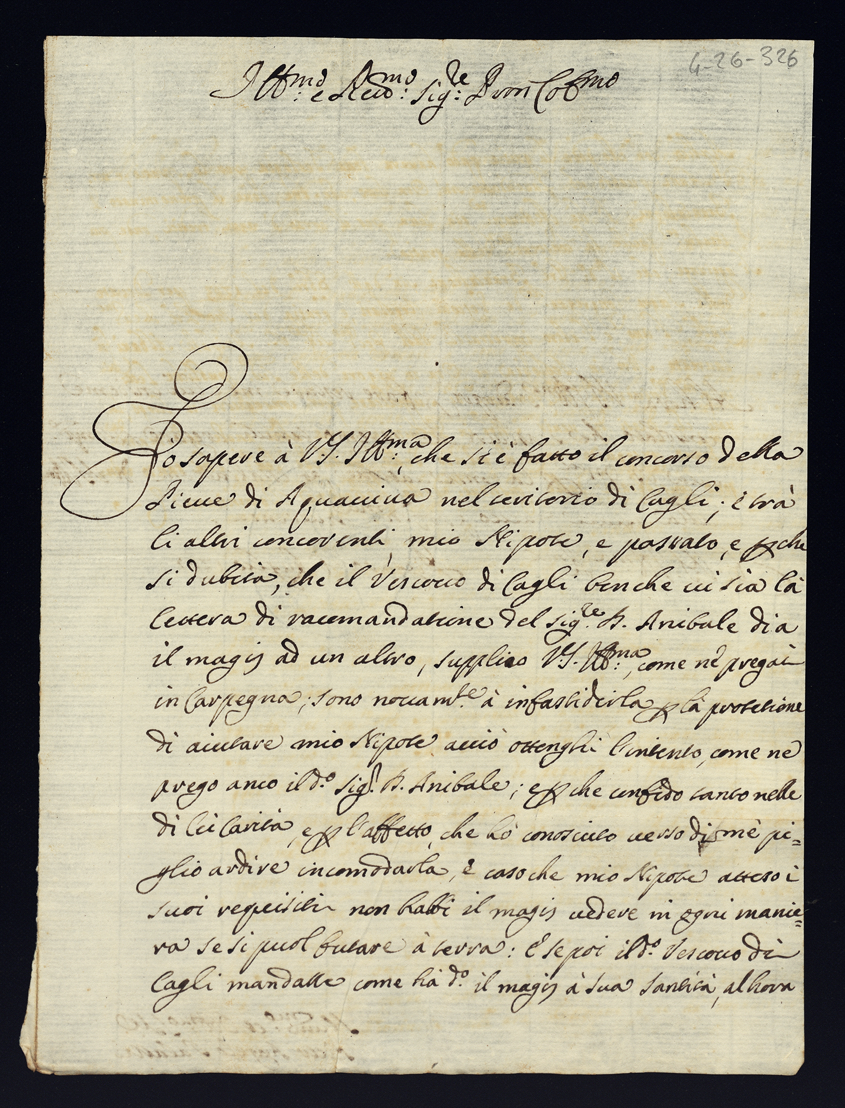 4-26-326
Ill:mo e Rev:mo Sig:re Pron Col:mo
Fo sapere à V.S. Ill:ma, che si è fatto il concorso della
Pieve di Aquaviva nel teritorio di Cagli; è trà
li altri concorenti mio Nipote, e passato, e perche
si dubita, che il Vescovo di Cagli benche vi sia la
lettera di racomandatione del Sig:re D. Anibale dia
il magis ad un altro, supplico V.S. Ill:ma, come nè pregai
in Carpegna; sono novam.te à infastidirla per la protetione
di aiutare mio Nipote acciò ottenghi l'intento, come nè
prego anco il d.o Sig.r D. Anibale; e perche confido tanto nelle
di lei Carità, e per l'affetto, che hò conosciuto verso di mè pi=
glio ardire incomodarla, è caso che mio Nipote atteso i
suoi requisiti non habbi il magis vedere in ogni manie=
ra se si puol butare à terra: È se poi il d.o Vescovo di
Cagli mandasse come hà d.o il magis à Sua Santità, alhora